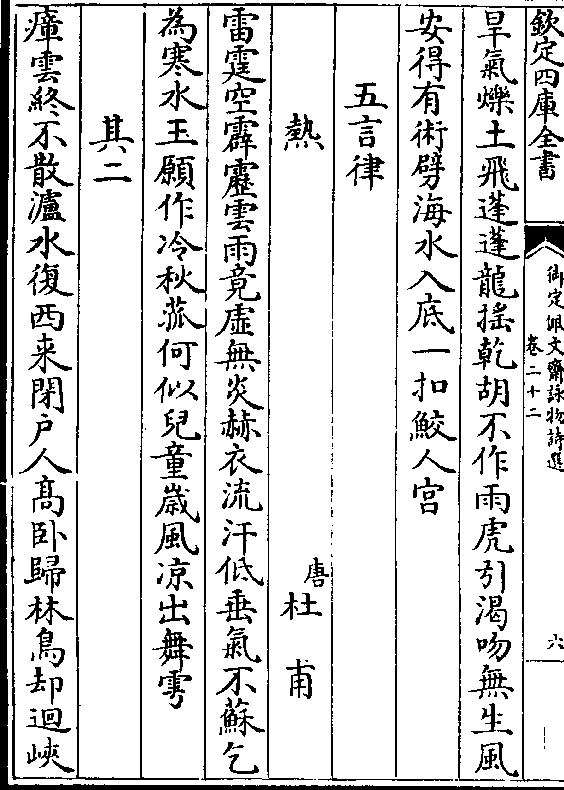 欽定四庫全書
御定佩文齋詠物詩選
卷二十二
六
旱氣爍土飛蓬蓬龍搖乾胡不作雨虎引渴吻無生風
安得有術劈海水入底一扣鮫人宮
五言律
熱
唐杜甫
雷霆空霹靂雲雨竟虛無炎赫衣流汗低垂氣不蘇乞
為寒水玉願作冷秋菰何似兒童歲風凉出舞雩
其二
瘴雲終不散瀘水復西来閉户人髙卧歸林鳥却迴峽